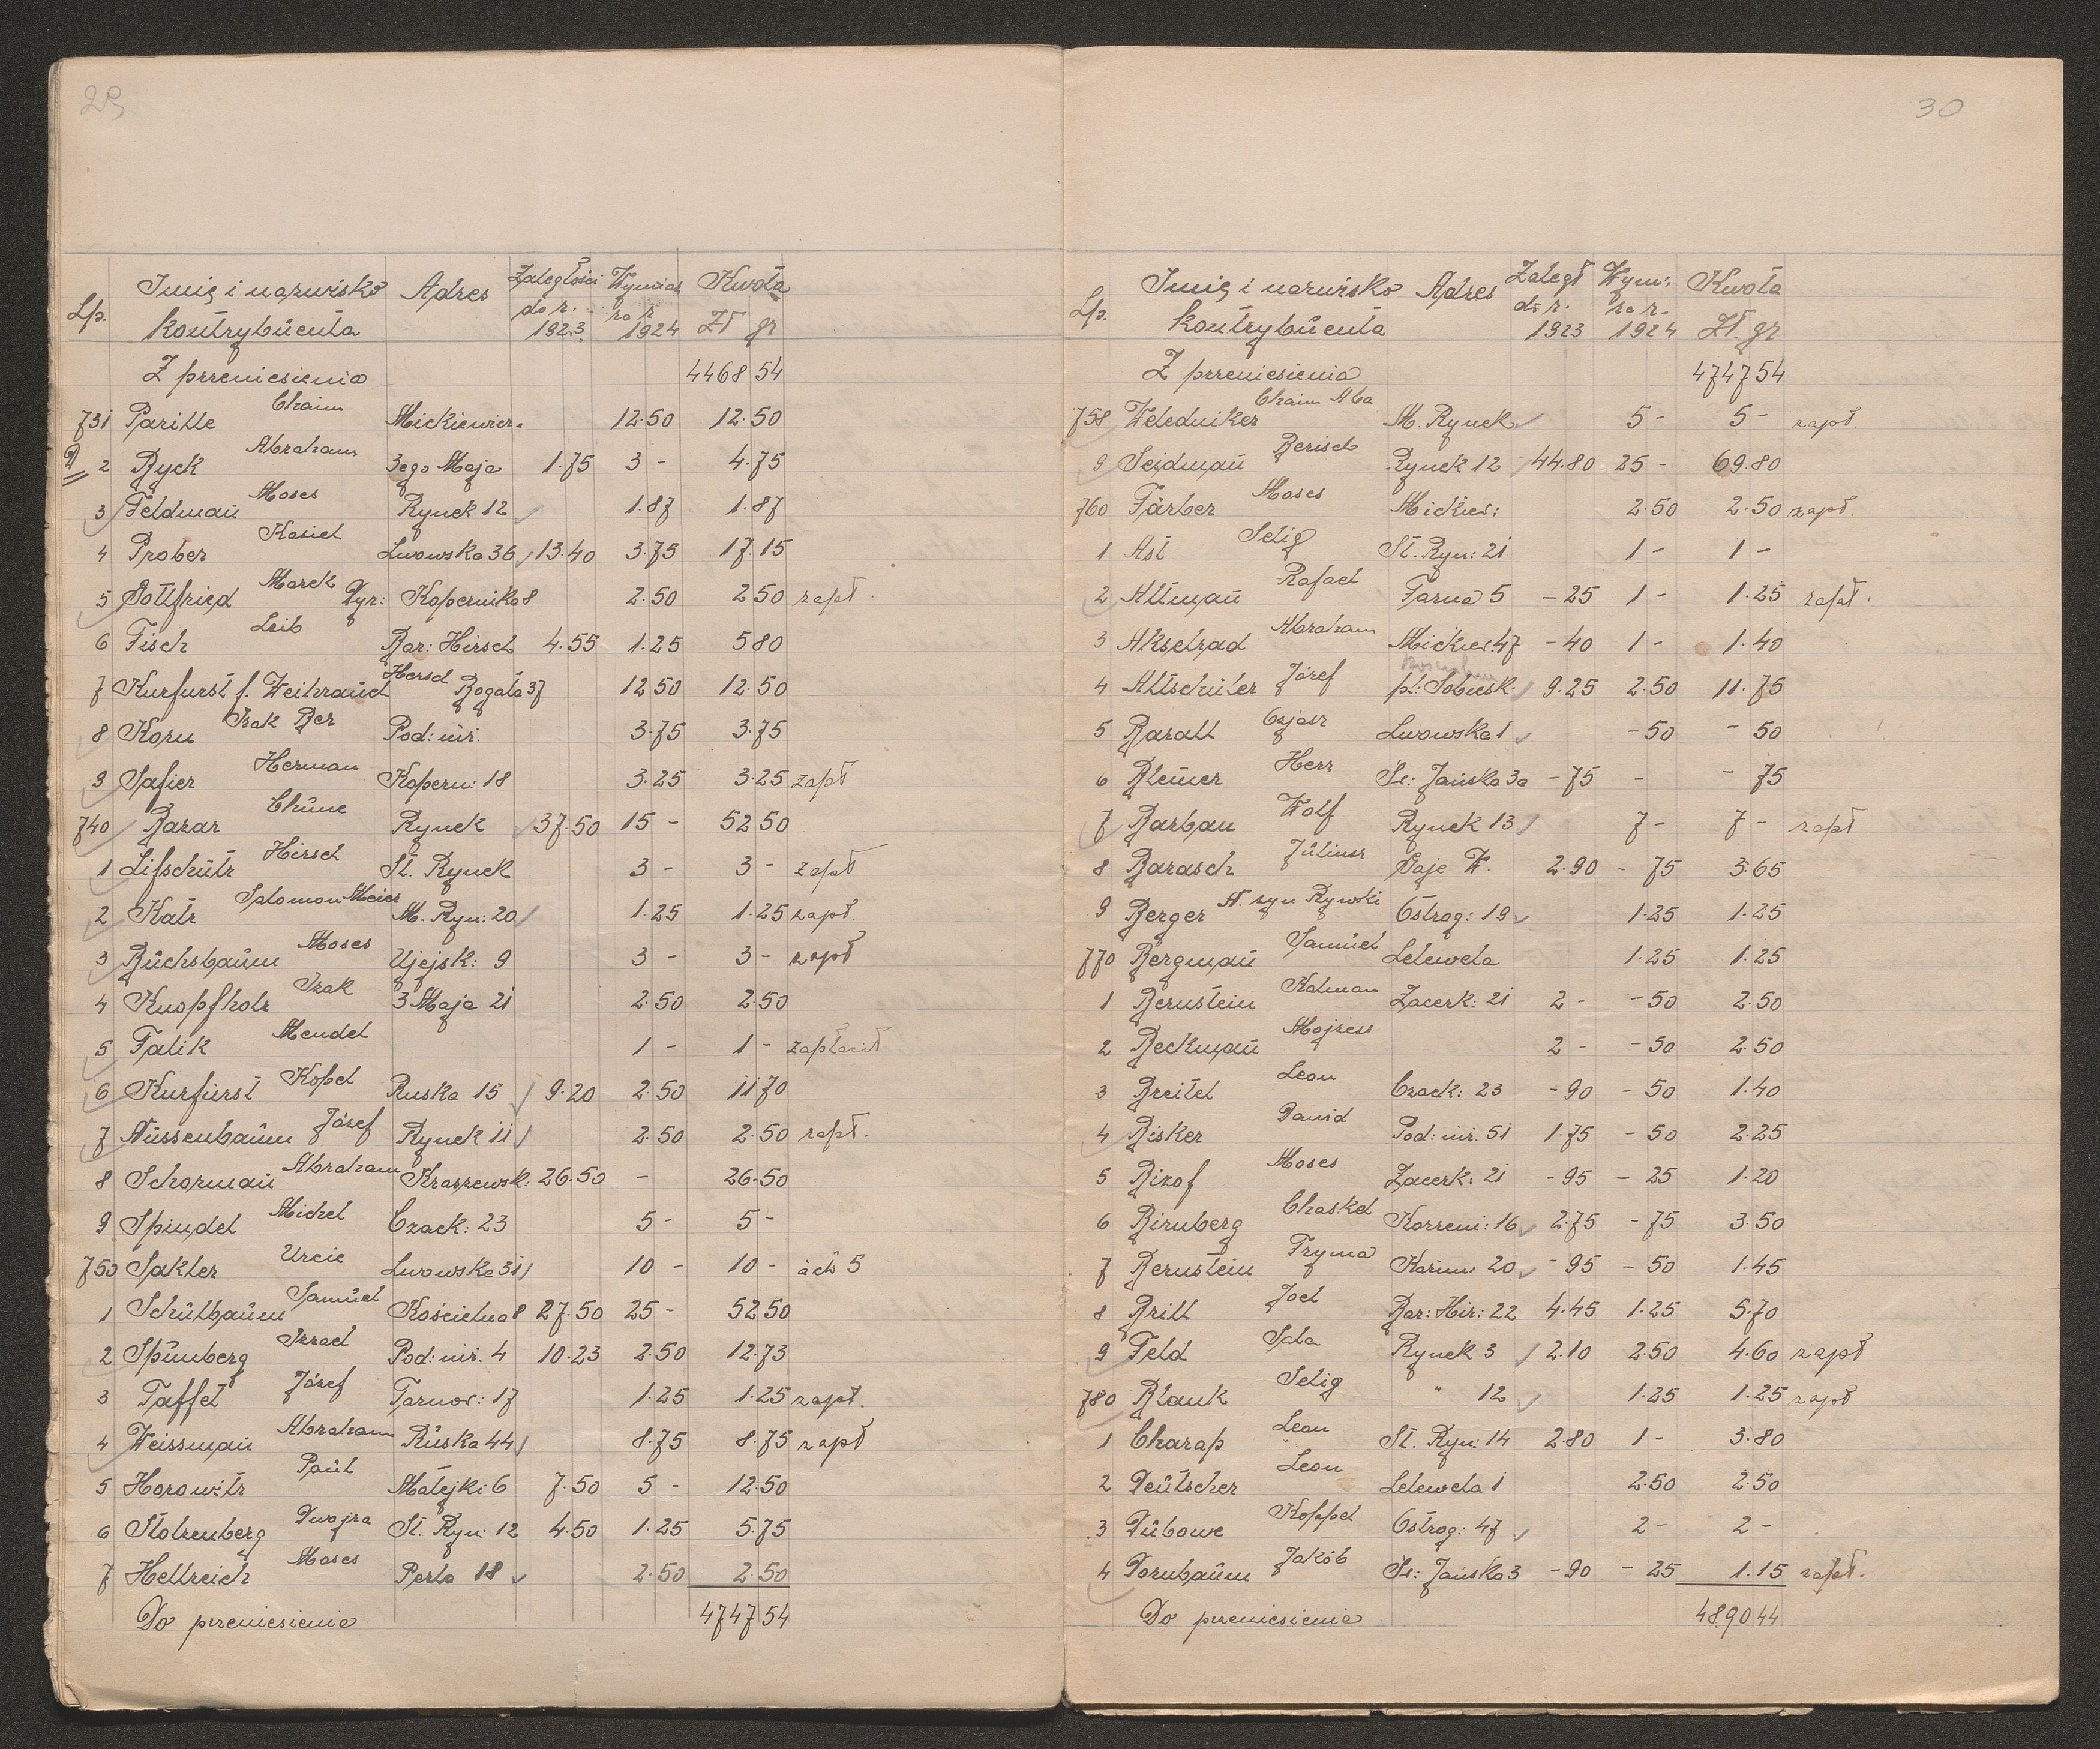 29
Lp. Imię i nazwisko kontrybuenta Adres Zaległości do r. 1923 Wymiar za r. 1924 Kwota Zł gr
Z przeniesienia 4468 54
731 Parille Chaim Mickiewicz. 12.50 12.50
2 Byck Abraham 3ego Maja 1.75 3 - 4.75
3 Feldman Moses Rynek 12 1.87 1.87
4 Prober Kasiel Lwowska 36 13.40 3.75 17.15
5 Gottfried Marek Dyr: Kopernika 8 2.50 2 50 zapł.
6 Fisch Leib Bar: Hirsch 4.55 1.25 5 80
7 Kurfürst f. Weihrauch Hersch Bogata 37 12 50 12.50
8 Korn Izak Ber Pod: niż. 3.75 3.75
9 Safier Herman Kopern: 18 3.25 3.25 zapł
740 Barar Chune Rynek 37.50 15 - 52 50
1 Lifschütz Hirsch St. Rynek 3 - 3 - zapł
2 Katz Salomon Meier M. Ryn: 20 1.25 1.25 zapł.
3 Büchsbaum Moses Ujejsk: 9 3 - 3 - zapł
4 Knopfholz Izak 3 Maja 21 2.50 2.50
5 Falik Mendel 1 - 1 - zapłacił
6 Kurfürst Kopel Ruska 15 9.20 2.50 11 70
7 Nussenbaum Józef Rynek 11 2.50 2.50 zapł.
8 Schorman Abraham Kraszewsk: 26.50 - 26.50
9 Spindel Michel Czack: 23 5 - 5 -
750 Sakler Urcie Lwowska 31 10 - 10 - ach 5
1 Schulbaum Samuel Kościelna 8 27.50 25 - 52 50
2 Spünberg Izrael Pod: niż. 4 10.23 2.50 12.73
3 Taffet Józef Tarnow: 17 1.25 1.25 zapł.
4 Weissman Abraham Ruska 44 8.75 8.75 zapł
5 Horowitz Paul Matejki 6 7.50 5 - 12.50
6 Stolzenberg Dwojra St. Ryn: 12 4.50 1.25 5.75
7 Hellreich Moses Perla 18 2.50 2.50
Do przeniesienia 4747 54
30
Lp. Imię i nazwisko kontrybuenta Adres Zaległ do r. 1923 Wym: za r. 1924 Kwota Zł. gr
Z przeniesienia 4747 54
758 Weledniker Chaim Aba M. Rynek 5 - 5 - zapł.
9 Seidman Berisch Rynek 12 44.80 25 - 69.80
760 Färber Moses Mickiew: 2.50 2.50 zapł.
1 Ast Selig St. Ryn: 21 1 - 1 -
2 Altman Rafael Farna 5 - 25 1 - 1.25 zapł.
3 Akselrad Abraham Mickiew. 47 - 40 1 - 1.40
4 Altschüler Józef pl: Sobiesk: 9.25 2.50 11.75
5 Baratt Ozjasz Lwowska 1 - 50 - 50
6 Bleiner Herz Św: Jańska 3a - 75 - - 75
7 Barban Wolf Rynek 13 7 - 7 - zapł
8 Barasch Juliusz Gaje W. 2.90 - 75 3.65
9 Berger N. syn Rywki Ostrog: 19 1.25 1.25
770 Bergman Samuel Lelewela 1.25 1.25
1 Bernstein Kalman Zacerk: 21 2 - - 50 2.50
2 Beckman Mojżesz 2 - - 50 2.50
3 Breitel Leon Czack: 23 - 90 - 50 1.40
4 Bisker Dawid Pod: niż. 51 1.75 - 50 2.25
5 Bizof Moses Zacerk: 21 - 95 - 25 1.20
6 Birnberg Chaskel Korzeni: 16 2.75 - 75 3.50
7 Bernstein Fryma Kazim: 20 - 95 - 50 1.45
8 Brill Joel Bar: Hir: 22 4.45 1.25 5.70
9 Feld Sala Rynek 3 2.10 2.50 4.60 zapł
780 Blank Selig " 12 1.25 1.25 zapł
1 Charap Leon St. Ryn: 14 2.80 1 - 3.80
2 Deutscher Leon Lelewela 1 2.50 2.50
3 Dubowe Koppel Ostrog: 47 2 - 2 -
4 Dornbaum Jakób Św: Jańska 3 - 90 - 25 1.15 zapł.
Do przeniesienia 4890 44